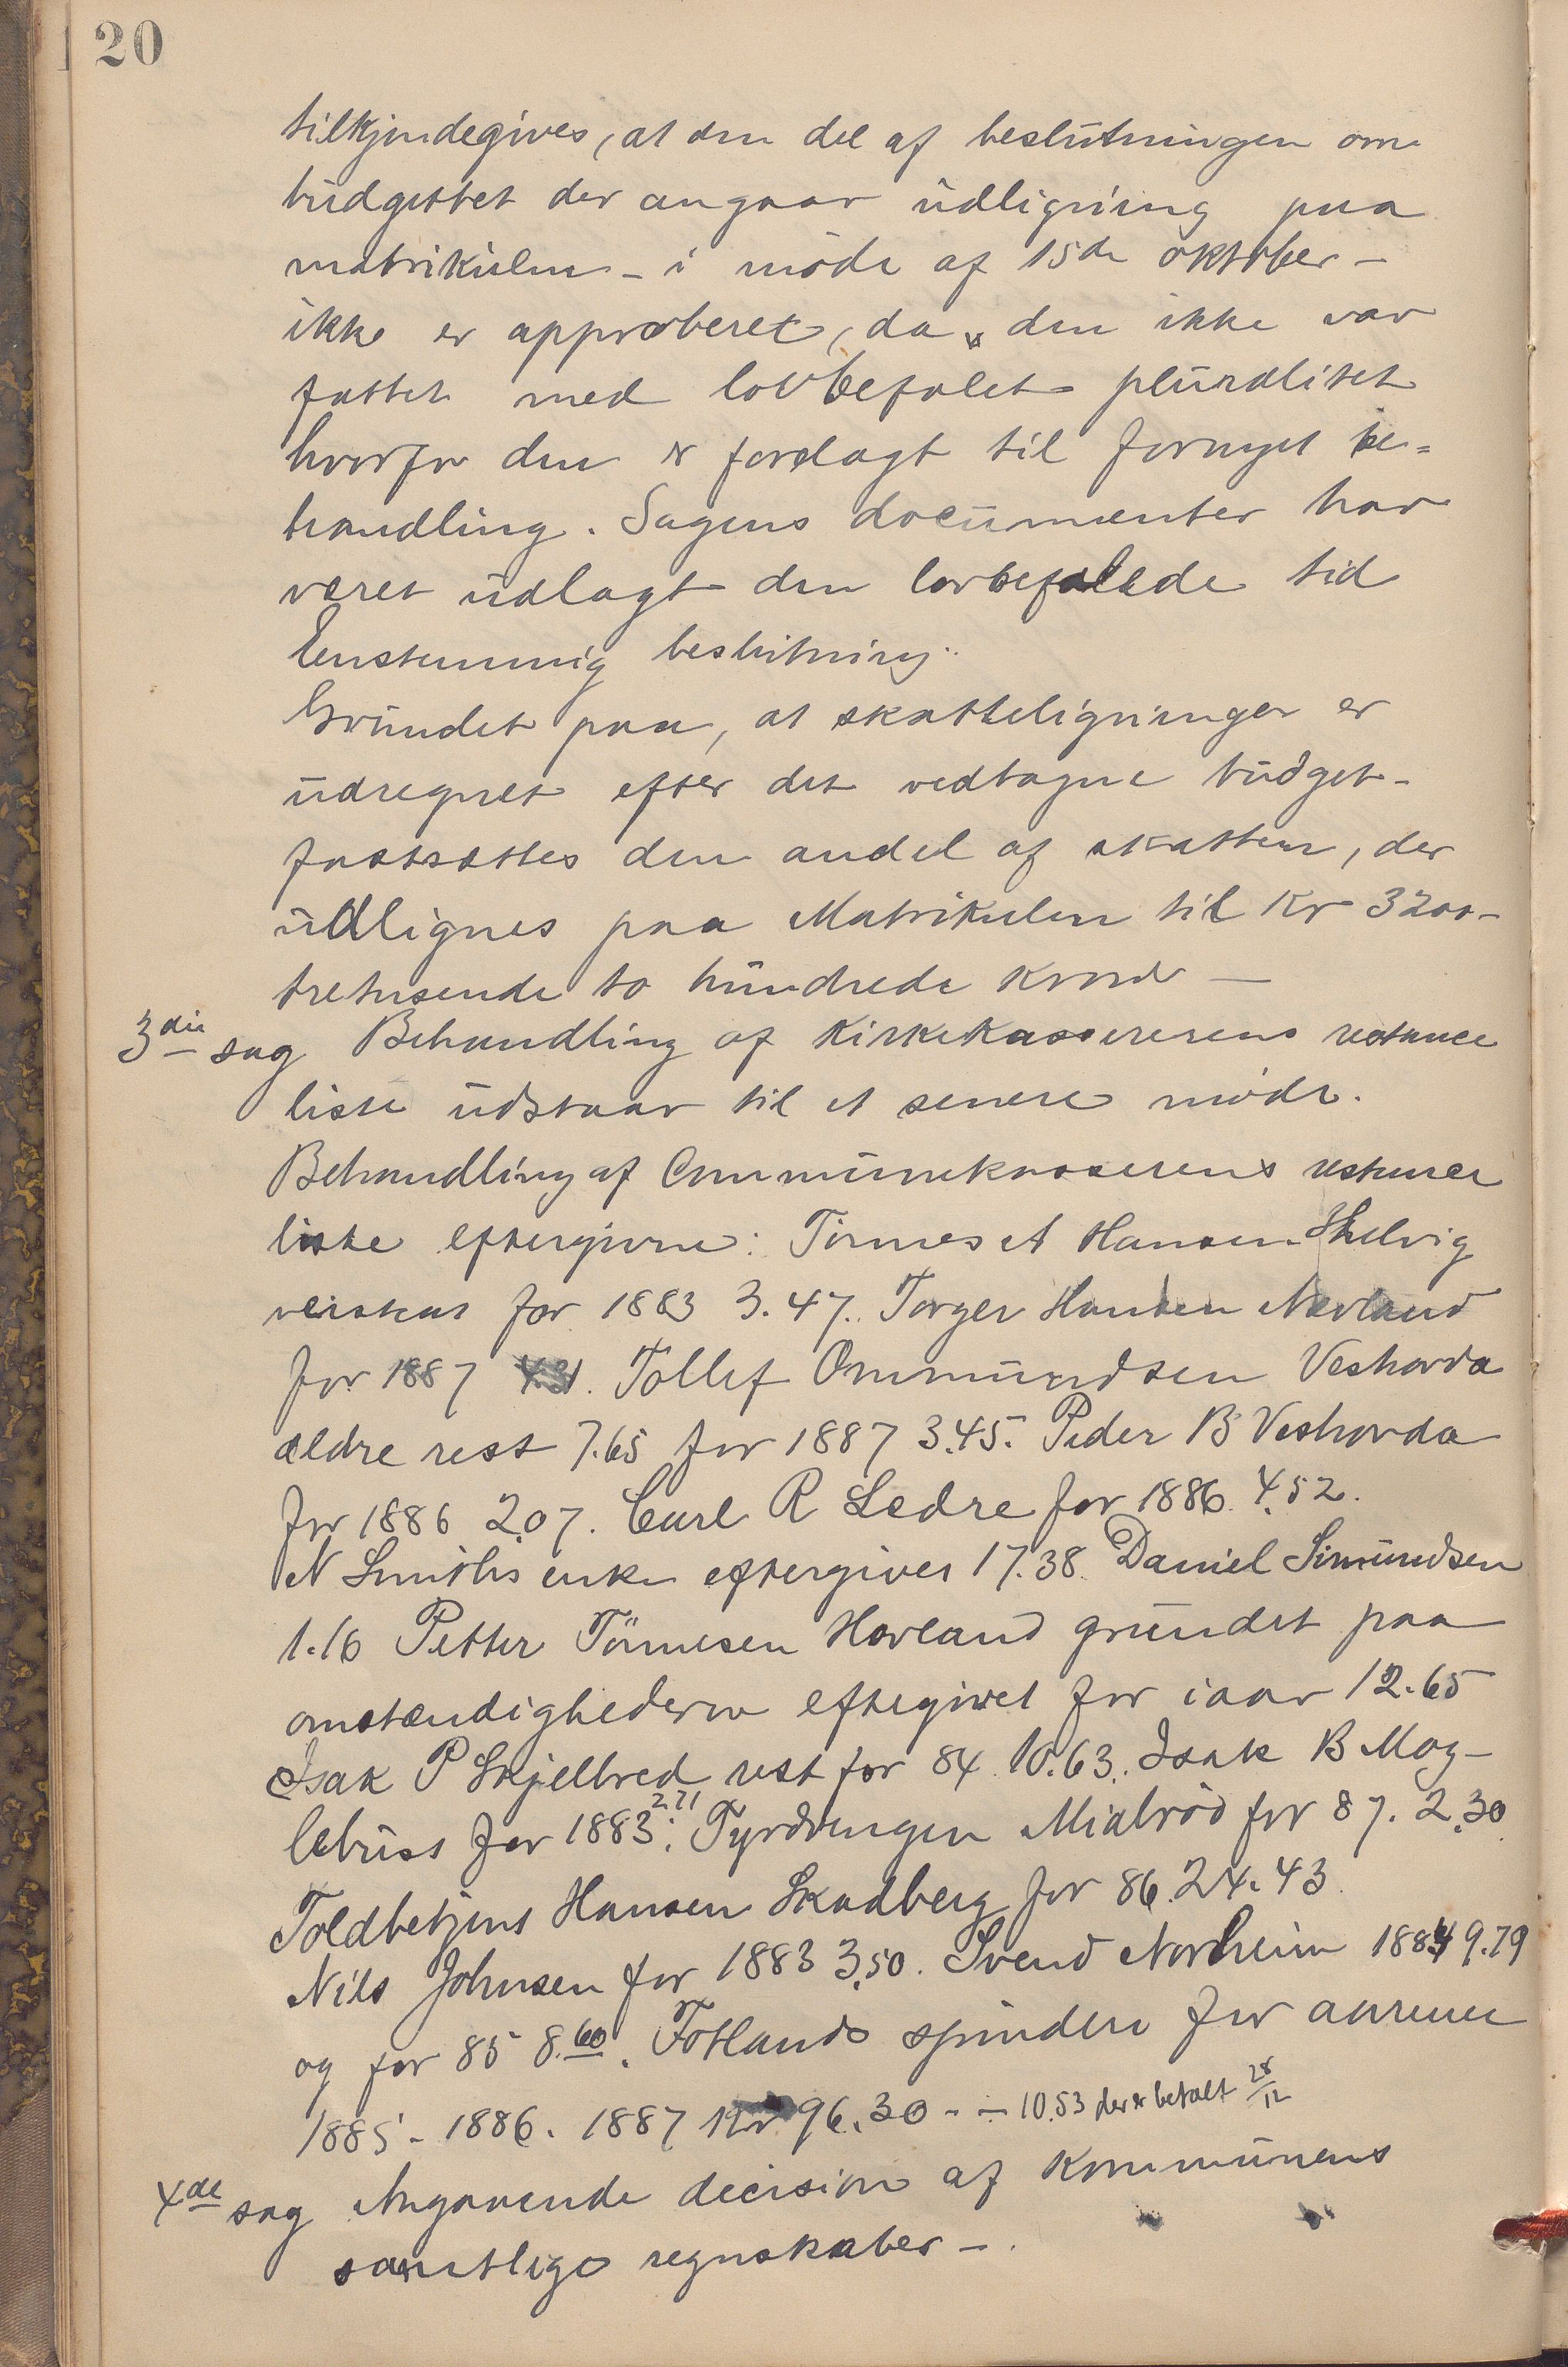 20
tilkjendegives, at den del af beslutningen om
budgettet der angaar udligning paa
matrikulen – i møde af 15de oktober –
ikke er approberet, da den ikke var
fattet med lovbefalet pluralitet
hvorfor den er forelagt til fornyet be=
handling. Sagens documenter har
været udlagt den lovbefalede tid
Enstemmig beslutning:
Grundet paa, at skatteligninger er
udregnet efter det vedtagne budget –
fastsættes den andel af skatten, der
udlignes paa Matrikulen til Kr 3200 –
tretusende to hundrede kroner –
3die sag Behandling af Kirkekassererens restance
liste udstaar til et senere møde.
Behandling af Communekasserens restance
liste eftergivne: Tønnes A Hansen Helvig
veiskat for 1883 3.47. Torger Hansen Nærland
for 1887 4.31. Tollef Ommundsen Veshovda
ældre rest 7.65 for 1887 3.45. Peder B Veshovda
for 1886 2.07. Carl R Ledre for 1886. 4.52.
N Smiths enke eftergives 17.38. Daniel Simundsen
1.16 Petter Tønnesen Hovland grundet paa
omstændighederne eftergivet for iaar 12.65
Isak P Skjelbred rest for 84 10.63. Isak B Mog-
lebust for 1883: 2.71 Fyrdvengen Midbrød for 87. 2.30
Toldbetjent Hansen Skadberg for 86. 24.43.
Nils Johnsen for 1883 3.50. Svend Norheim 1884 9.79
og for 85 8.60. Fotlands spinderi for aarene
1885 – 1886. 1887 Kr 96.30 – ÷ 10.53 der er betalt 28/12
4de sag Angaaende decision af kommunens
samtlige regnskaber – .